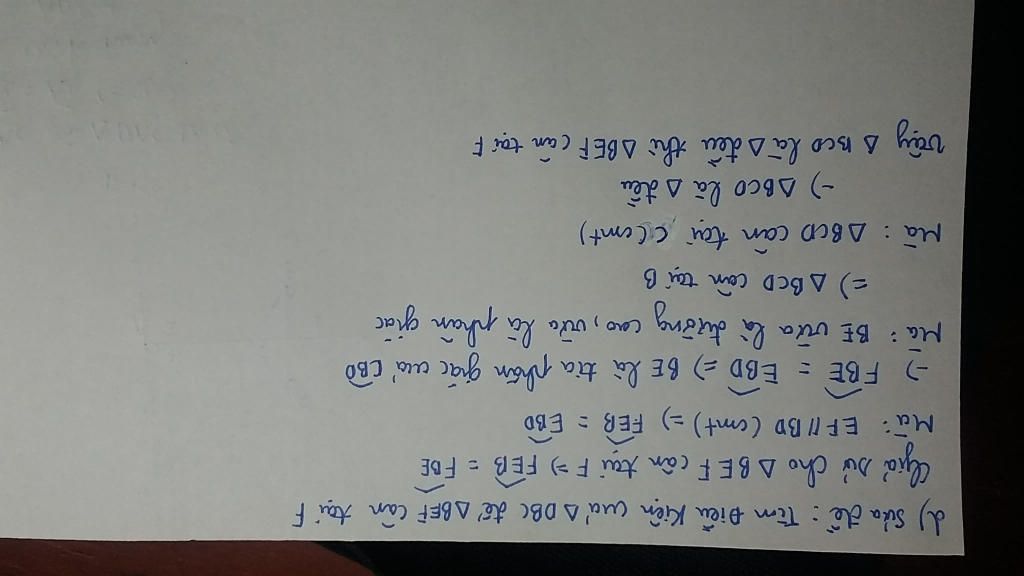 d) Sửa đề: Tìm Điều Kiện của Δ DBC để ΔBEF cân tại F
Giả sử cho ΔBEF cân tại F => FEB = FBE
Mà: EF//BD (cmt) => FEB = EBD
-) FBE = EBD => BE là tia phân giác của CBD
Mà: BE vừa là đường cao, vừa là phân giác
=) Δ BCD cân tại B
Mà: Δ BCD cân tại C (cmt)
-) Δ BCD là Δ đều
Vậy Δ BCD là Δ đều thì Δ BEF cân tại F